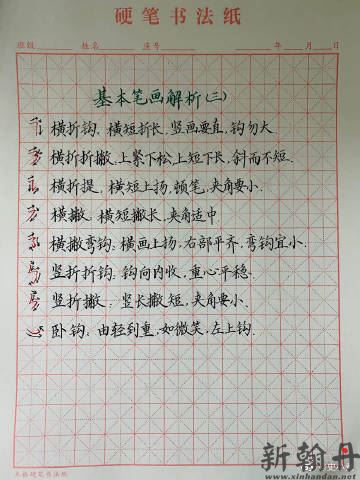 硬笔书法纸
班级 姓名 座号 年 月 日
基本笔画解析(三)
横折钩，横短折长，竖画要直，钩勿大.
横折折撇，上紧下松上短下长，斜而不短.
横折提，横短上扬，顿笔，夹角要小.
横撇 横短撇长，夹角适中.
横撇弯钩：横画上扬，右部平齐，弯钩宜小.
竖折折钩：钩向内收，重心平稳.
竖折撇：竖长撇短，夹角要小.
卧钩：由轻到重，如微笑，左上钩.
新翰丹
www.xinhandan.net